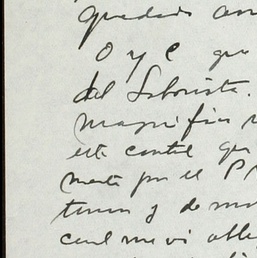 quedado con
O y C que
del Laborista.
magnifica
este control que
mente por el P
tener y de mo
cual me vi oblig